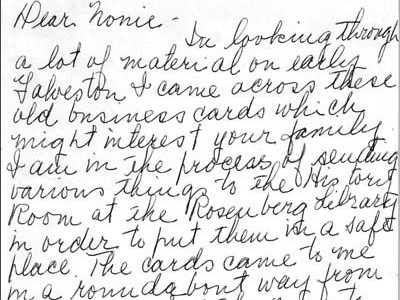 Dear Nonie -
In looking through
a lot of material on early
Galveston I came across these
old business cards which
might interest your family.
I am in the process of sending
various things to the History
Room at the Rosenberg Library
in order to put them in a safe
place. The cards came to me
in a roundabout way from